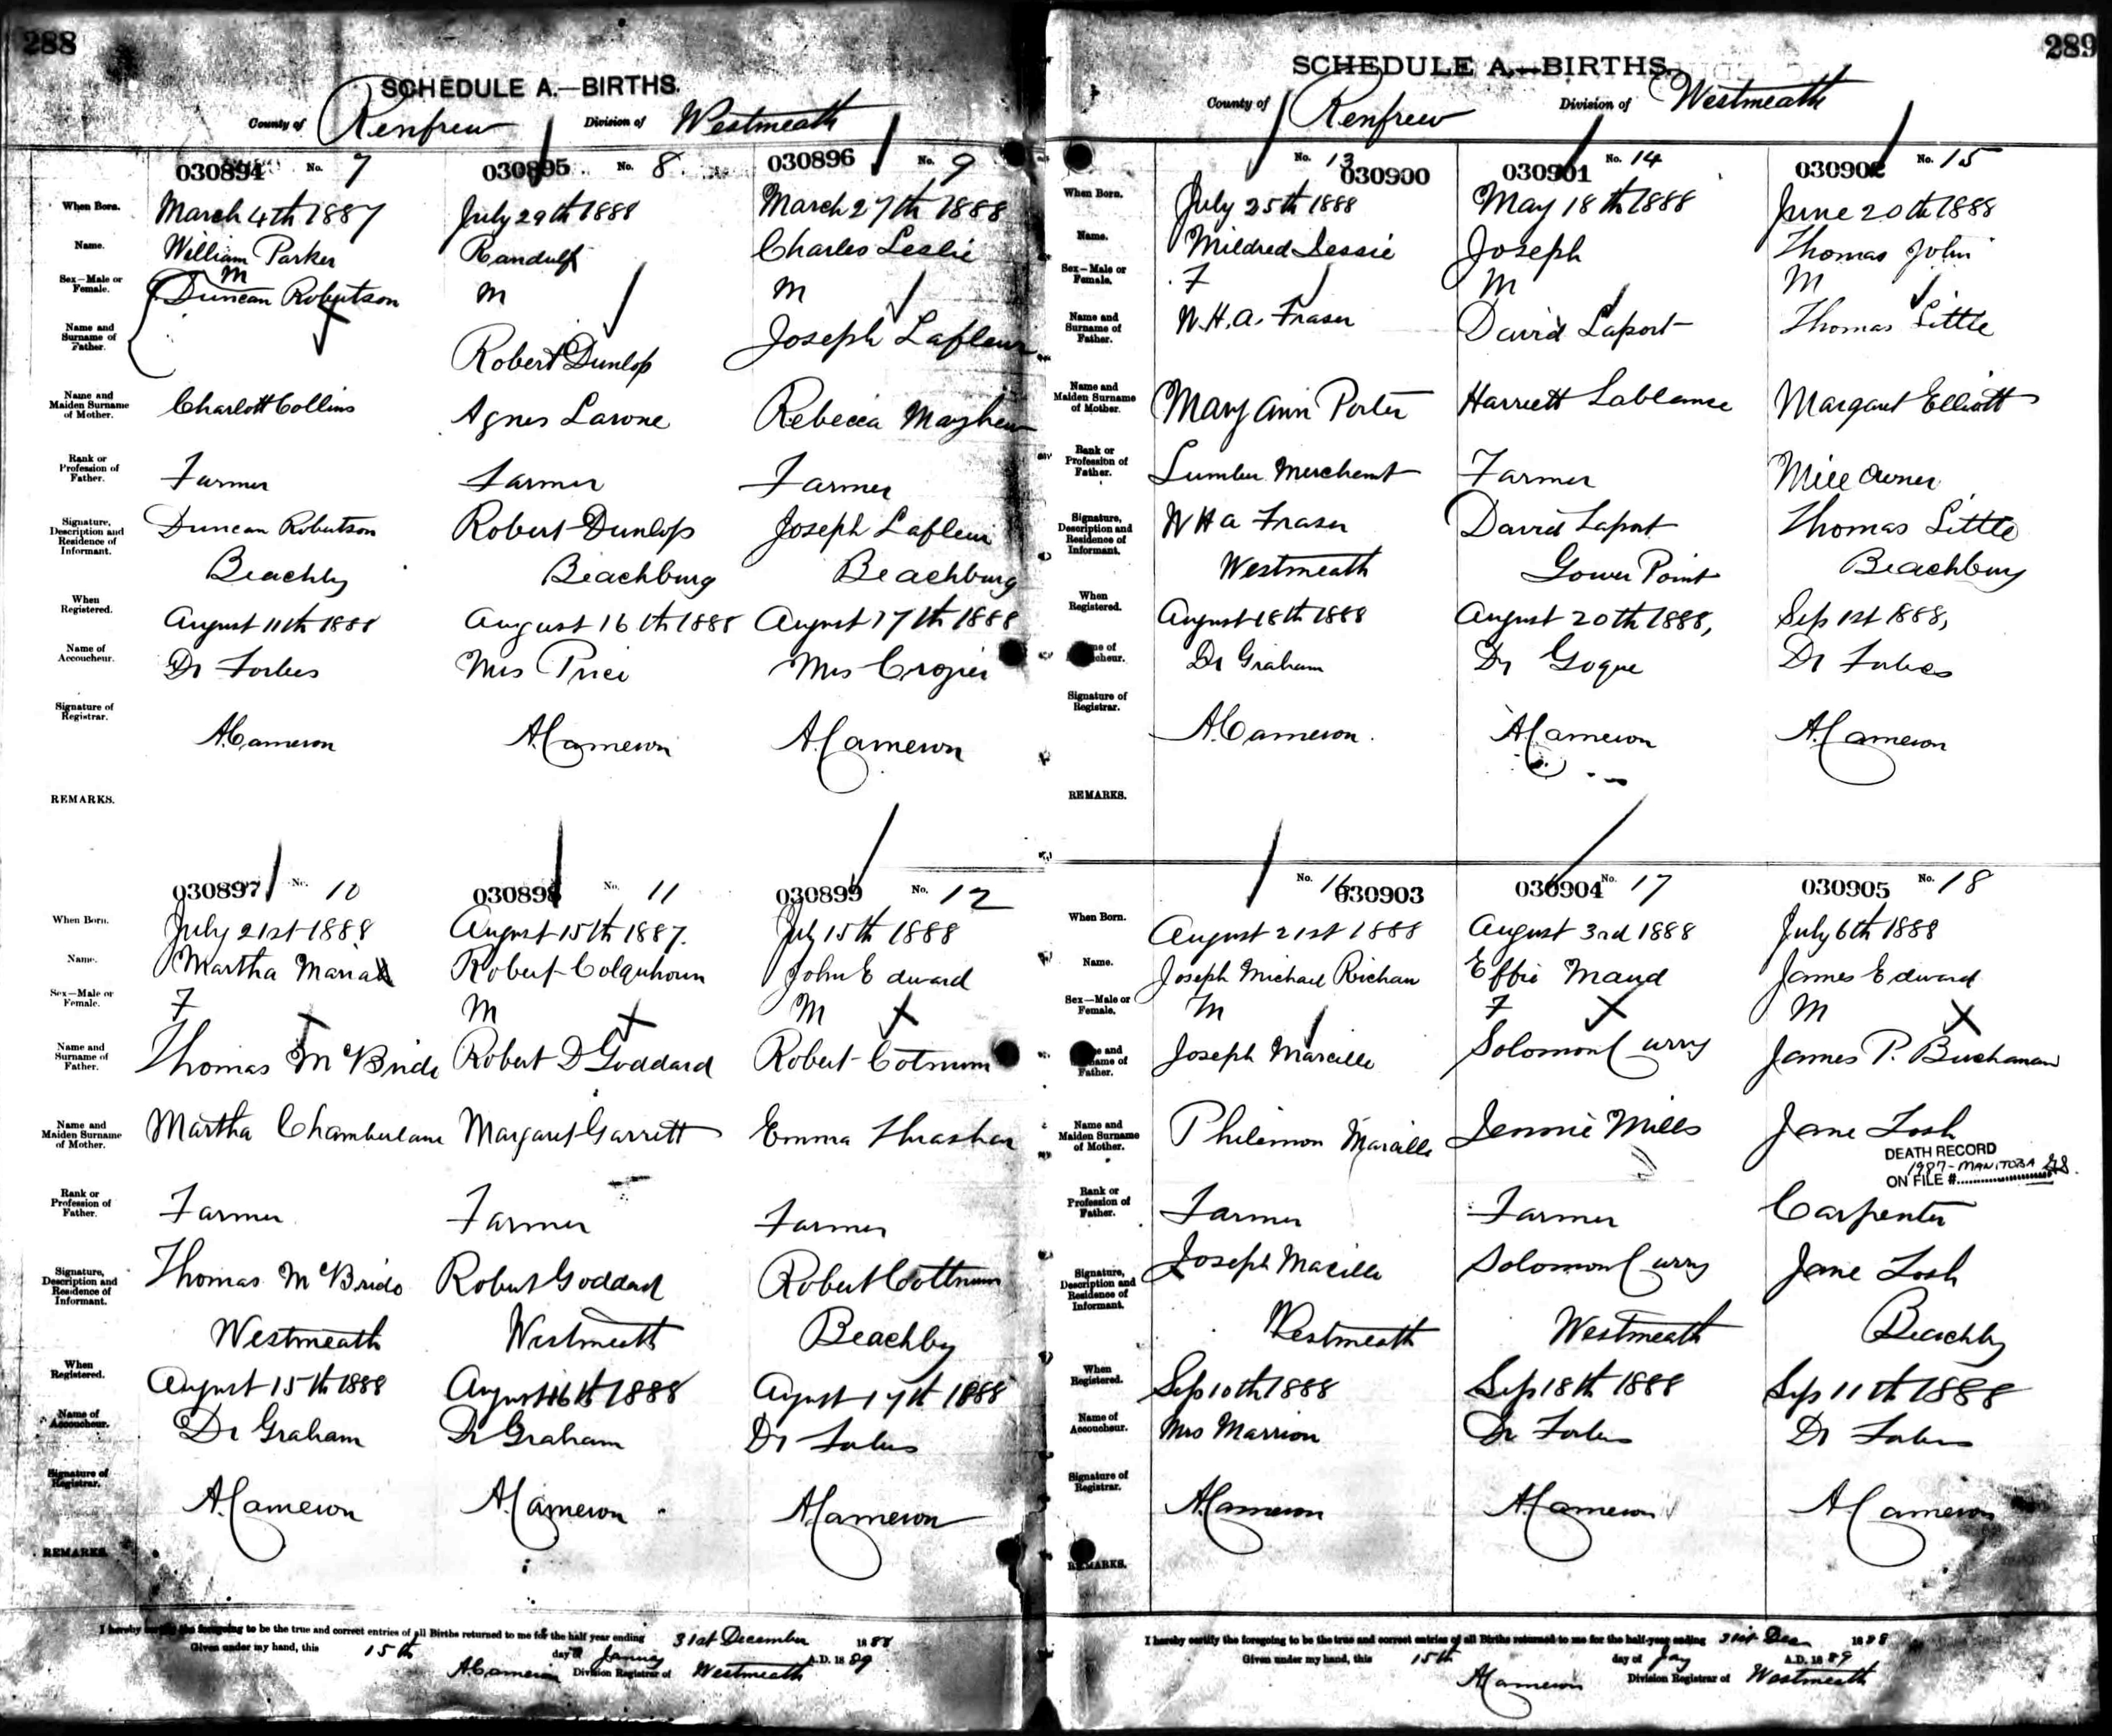 288
SCHEDULE A.—BIRTHS.
County of Renfrew Division of Westmeath
030894 No. 7 030895 No. 8 030896 No. 9
When Born. March 4th 1887 July 29th 1888 March 27th 1888
Name. William Parker Randulf Charles Leslie
Sex—Male or Female. M M M
Name and Surname of Father. Duncan Robertson Robert Dunlop Joseph Lafleur
Name and Maiden Surname of Mother. Charlott Collins Agnes Larone Rebecca Mayhew
Rank or Profession of Father. Farmer Farmer Farmer
Signature, Description and Residence of Informant. Duncan Robertson Robert Dunlop Joseph Lafleur
Beachby Beachburg Beachburg
When Registered. August 11th 1888 August 16th 1888 August 17th 1888
Name of Accoucheur. Dr Forbes Mrs Price Mrs Crozier
Signature of Registrar. A. Cameron A. Cameron A. Cameron
REMARKS.
030897 No. 10 030898 No. 11 030899 No. 12
When Born. July 21st 1888 August 15th 1887. July 15th 1888
Name. Martha Maria Robert Colquhoun John Edward
Sex—Male or Female. F M M
Name and Surname of Father. Thomas McBride Robert D Goddard Robert Cotnum
Name and Maiden Surname of Mother. Martha Chamberlane Margaret Garrett Emma Thrasher
Rank or Profession of Father. Farmer Farmer Farmer
Signature, Description and Residence of Informant. Thomas McBride Robert Goddard Robert Cottnum
Westmeath Westmeath Beachby
When Registered. August 15th 1888 August 16th 1888 August 17th 1888
Name of Accoucheur. Dr Graham Dr Graham Dr Forbes
Signature of Registrar. A. Cameron A. Cameron A. Cameron
REMARKS.
I hereby certify the foregoing to be the true and correct entries of all Births returned to me for the half year ending 31st December 1888
Given under my hand, this 15th day of January A.D. 1889
A Cameron Division Registrar of Westmeath
289
SCHEDULE A.—BIRTHS.
County of Renfrew Division of Westmeath
No. 13 030900 030901 No. 14 030902 No. 15
When Born. July 25th 1888 May 18th 1888 June 20th 1888
Name. Mildred Jessie Joseph Thomas John
Sex—Male or Female. F M M
Name and Surname of Father. W. H. A. Fraser David Laport Thomas Little
Name and Maiden Surname of Mother. Mary Ann Porter Harriett Lablance Margaret Elliott
Rank or Profession of Father. Lumber Merchant Farmer Mill Owner
Signature, Description and Residence of Informant. W H A Fraser David Laport Thomas Little
Westmeath Gower Point Beachburg
When Registered. August 18th 1888 August 20th 1888, Sep 1st 1888,
Name of Accoucheur. Dr Graham Dr Gogue Dr Forbes
Signature of Registrar. A. Cameron. A. Cameron A. Cameron
REMARKS.
No. 16 030903 030904 No. 17 030905 No. 18
When Born. August 21st 1888 August 3rd 1888 July 6th 1888
Name. Joseph Michael Richan Effie Maud James Edward
Sex—Male or Female. M F M
Name and Surname of Father. Joseph Marcille Solomon Curry James P. Buchanan
Name and Maiden Surname of Mother. Philimon Marcille Jennie Mills Jane Losh
DEATH RECORD
1987-MANITOBA
ON FILE #
Rank or Profession of Father. Farmer Farmer Carpenter
Signature, Description and Residence of Informant. Joseph Macille Solomon Curry Jane Losh
Westmeath Westmeath Beachby
When Registered. Sep 10th 1888 Sep 18th 1888 Sep 11th 1888
Name of Accoucheur. Mrs Marrion Dr Forbes Dr Forbes
Signature of Registrar. A Cameron A Cameron A Cameron
REMARKS.
I hereby certify the foregoing to be the true and correct entries of all Births returned to me for the half-year ending 31st Dec 1888
Given under my hand, this 15th day of Jay A.D. 1889
A Cameron Division Registrar of Westmeath